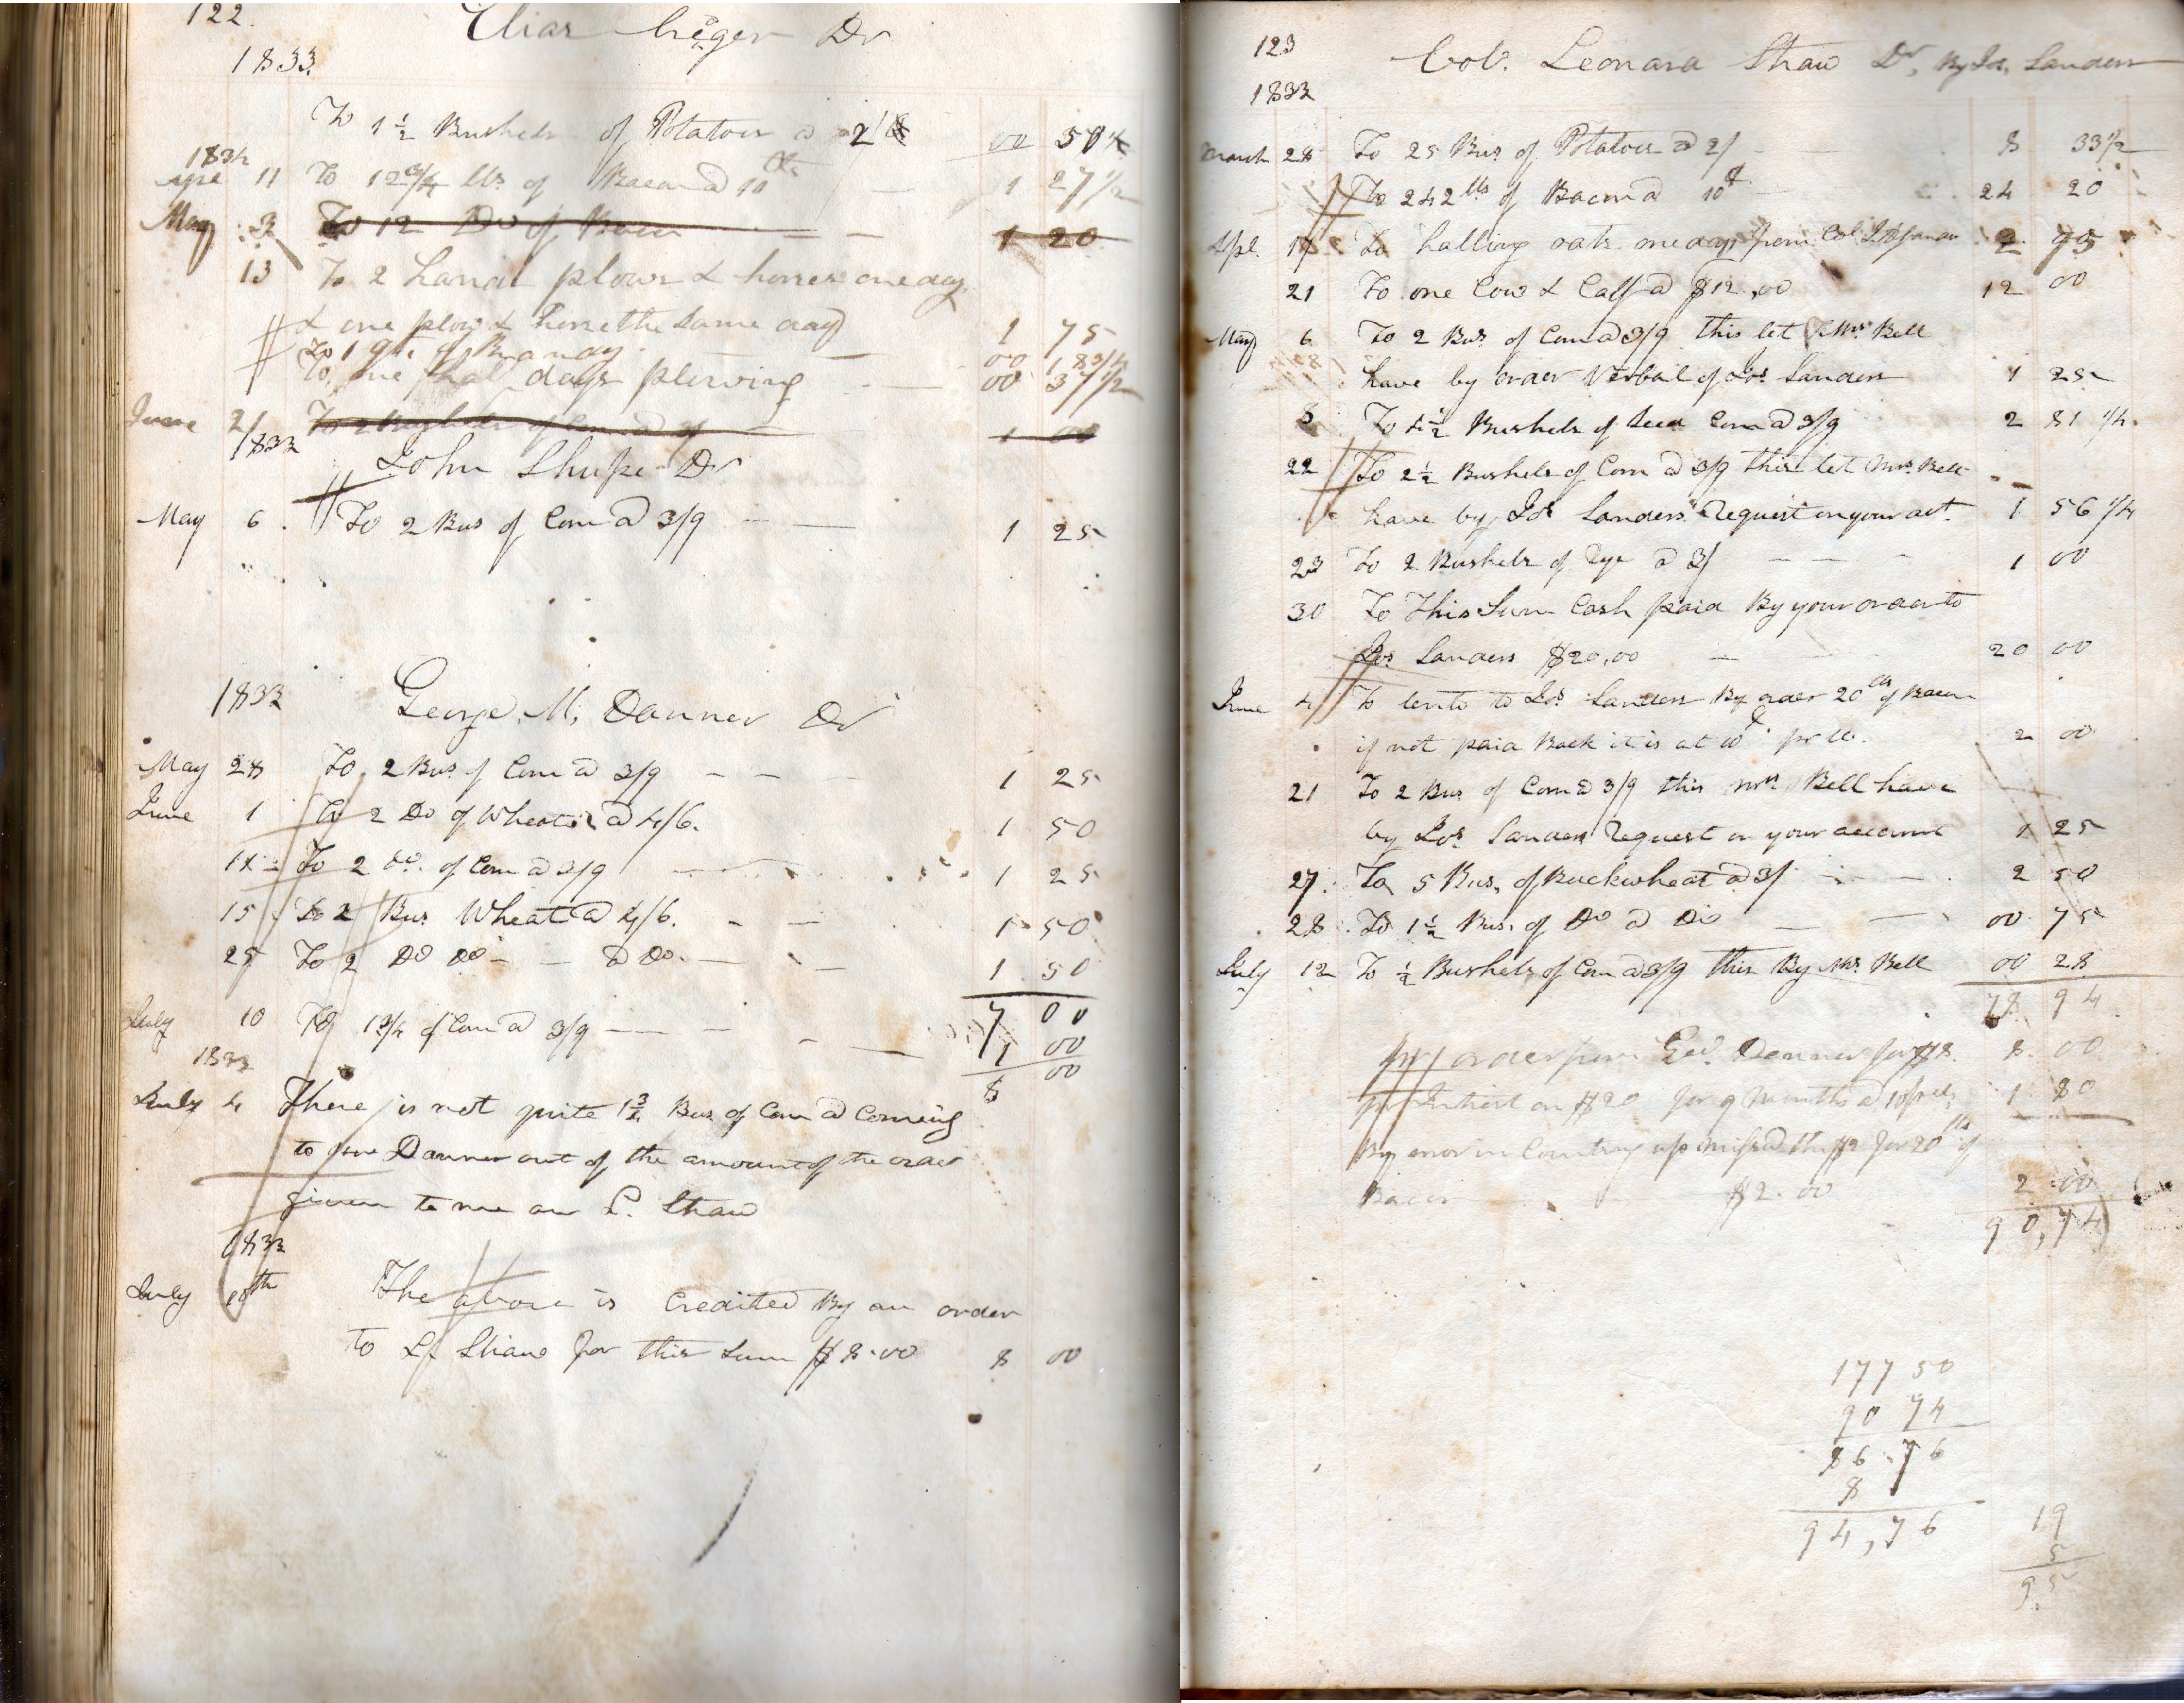 122
Elias Creger Dr
1833
To 1 1/2 Bushels of Potatoes a 2/ 00 50
1834
Apl 11 To 12 3/4 lbs of Bacon a 10 Cts 1 27 1/2
May 3 To 12 Do of Bacon 1 20
13 To 2 hands plows & horses one day
& one plow & horse the same day 1 75
To 1 qt. of Brandy 00 18 3/4
To one half days plowing 00 37 1/2
June 2 To 2 Bushels of Corn a 3/ 1 00
1833
John Shupe Dr
May 6 To 2 Bus of Corn a 3/9 1 25
1833 George M, Danner Dr
May 28 To 2 Bus of Corn a 3/9 1 25
June 1 To 2 Do of Wheat a 4/6. 1 50
11 To 2 do. of Corn a 3/9 1 25
15 To 2 Bus Wheat a 4/6. 1 50
25 To 2 Do Do a Do. 1 50
7 00
July 10 To 1 3/4 of Corn a 3/9 1 00
1833 8 00
July 4 There is not quite 1 3/4 Bus of Corn a Coming
to Danner out of the amount of the order
given to me on L. Shaw
1833
July 10th The above is Credited By an order
to L. Shaw for this Sum $8.00 8 00
123 Col. Leonard Shaw Dr, By Js, Sanders
1833
March 28 To 25 Bus of Potatoes a 2/ 8 33 1/2
To 242 lbs of Bacon a 10 24 20
Apl. 17 To halling oats one day from Col 2 75
21 To one Cow & Calf a $12,00 12 00
May 6 To 2 Bus of Corn a 3/9 this let Mrs Bell
have by order Verbal of Jos Sanders 1 25
8 To 4 1/2 Bushels of Seed Corn a 3/9 2 81 1/4
22 To 2 1/2 Bushels of Corn a 3/9 this let Mrs. Bell
have by Jos Sanders Request on your act. 1 56 1/4
23 To 2 Bushels of Rye a 3/ 1 00
30 To This Sum Cash paid By your order to
Jos Sanders $20,00 20 00
June 4 To lent to Jos Sanders By order 20 lbs of Bacon
if not paid Back it is at 10 pr lb. 2 00
21 To 2 Bus of Corn a 3/9 this Mrs Bell have
by Jos Sanders Request on your account 1 25
27 To 5 Bus, of Buckwheat a 3/ 2 50
28 To 1 1/2 Bus. of Do a Do 00 75
July 12 To 1/2 Bushels of Corn a 3/9 this By Mrs Bell 00 28
78 94
order from Geo. Danner for $8. 8 00
Intrest on $20 for 9 Months a 1 80
By error in Counting up missed the $2 for 20 lb of
Bacon $2.00 2 00
90,74
177 50
90 74
86 76
8
94,76
19
5
95